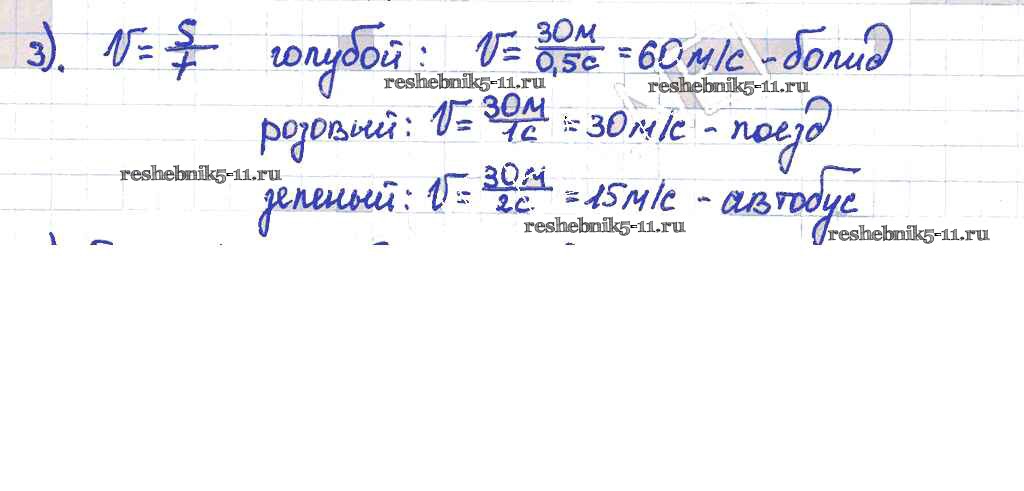 3). V = S/t голубой: V = 30м/0,5с = 60м/с - болид
reshebnik5-11.ru reshebnik5-11.ru
розовый: V = 30м/1с = 30м/с - поезд
reshebnik5-11.ru
зеленый: V = 30м/2с. = 15м/с - автобус
reshebnik5-11.ru reshebnik5-11.ru